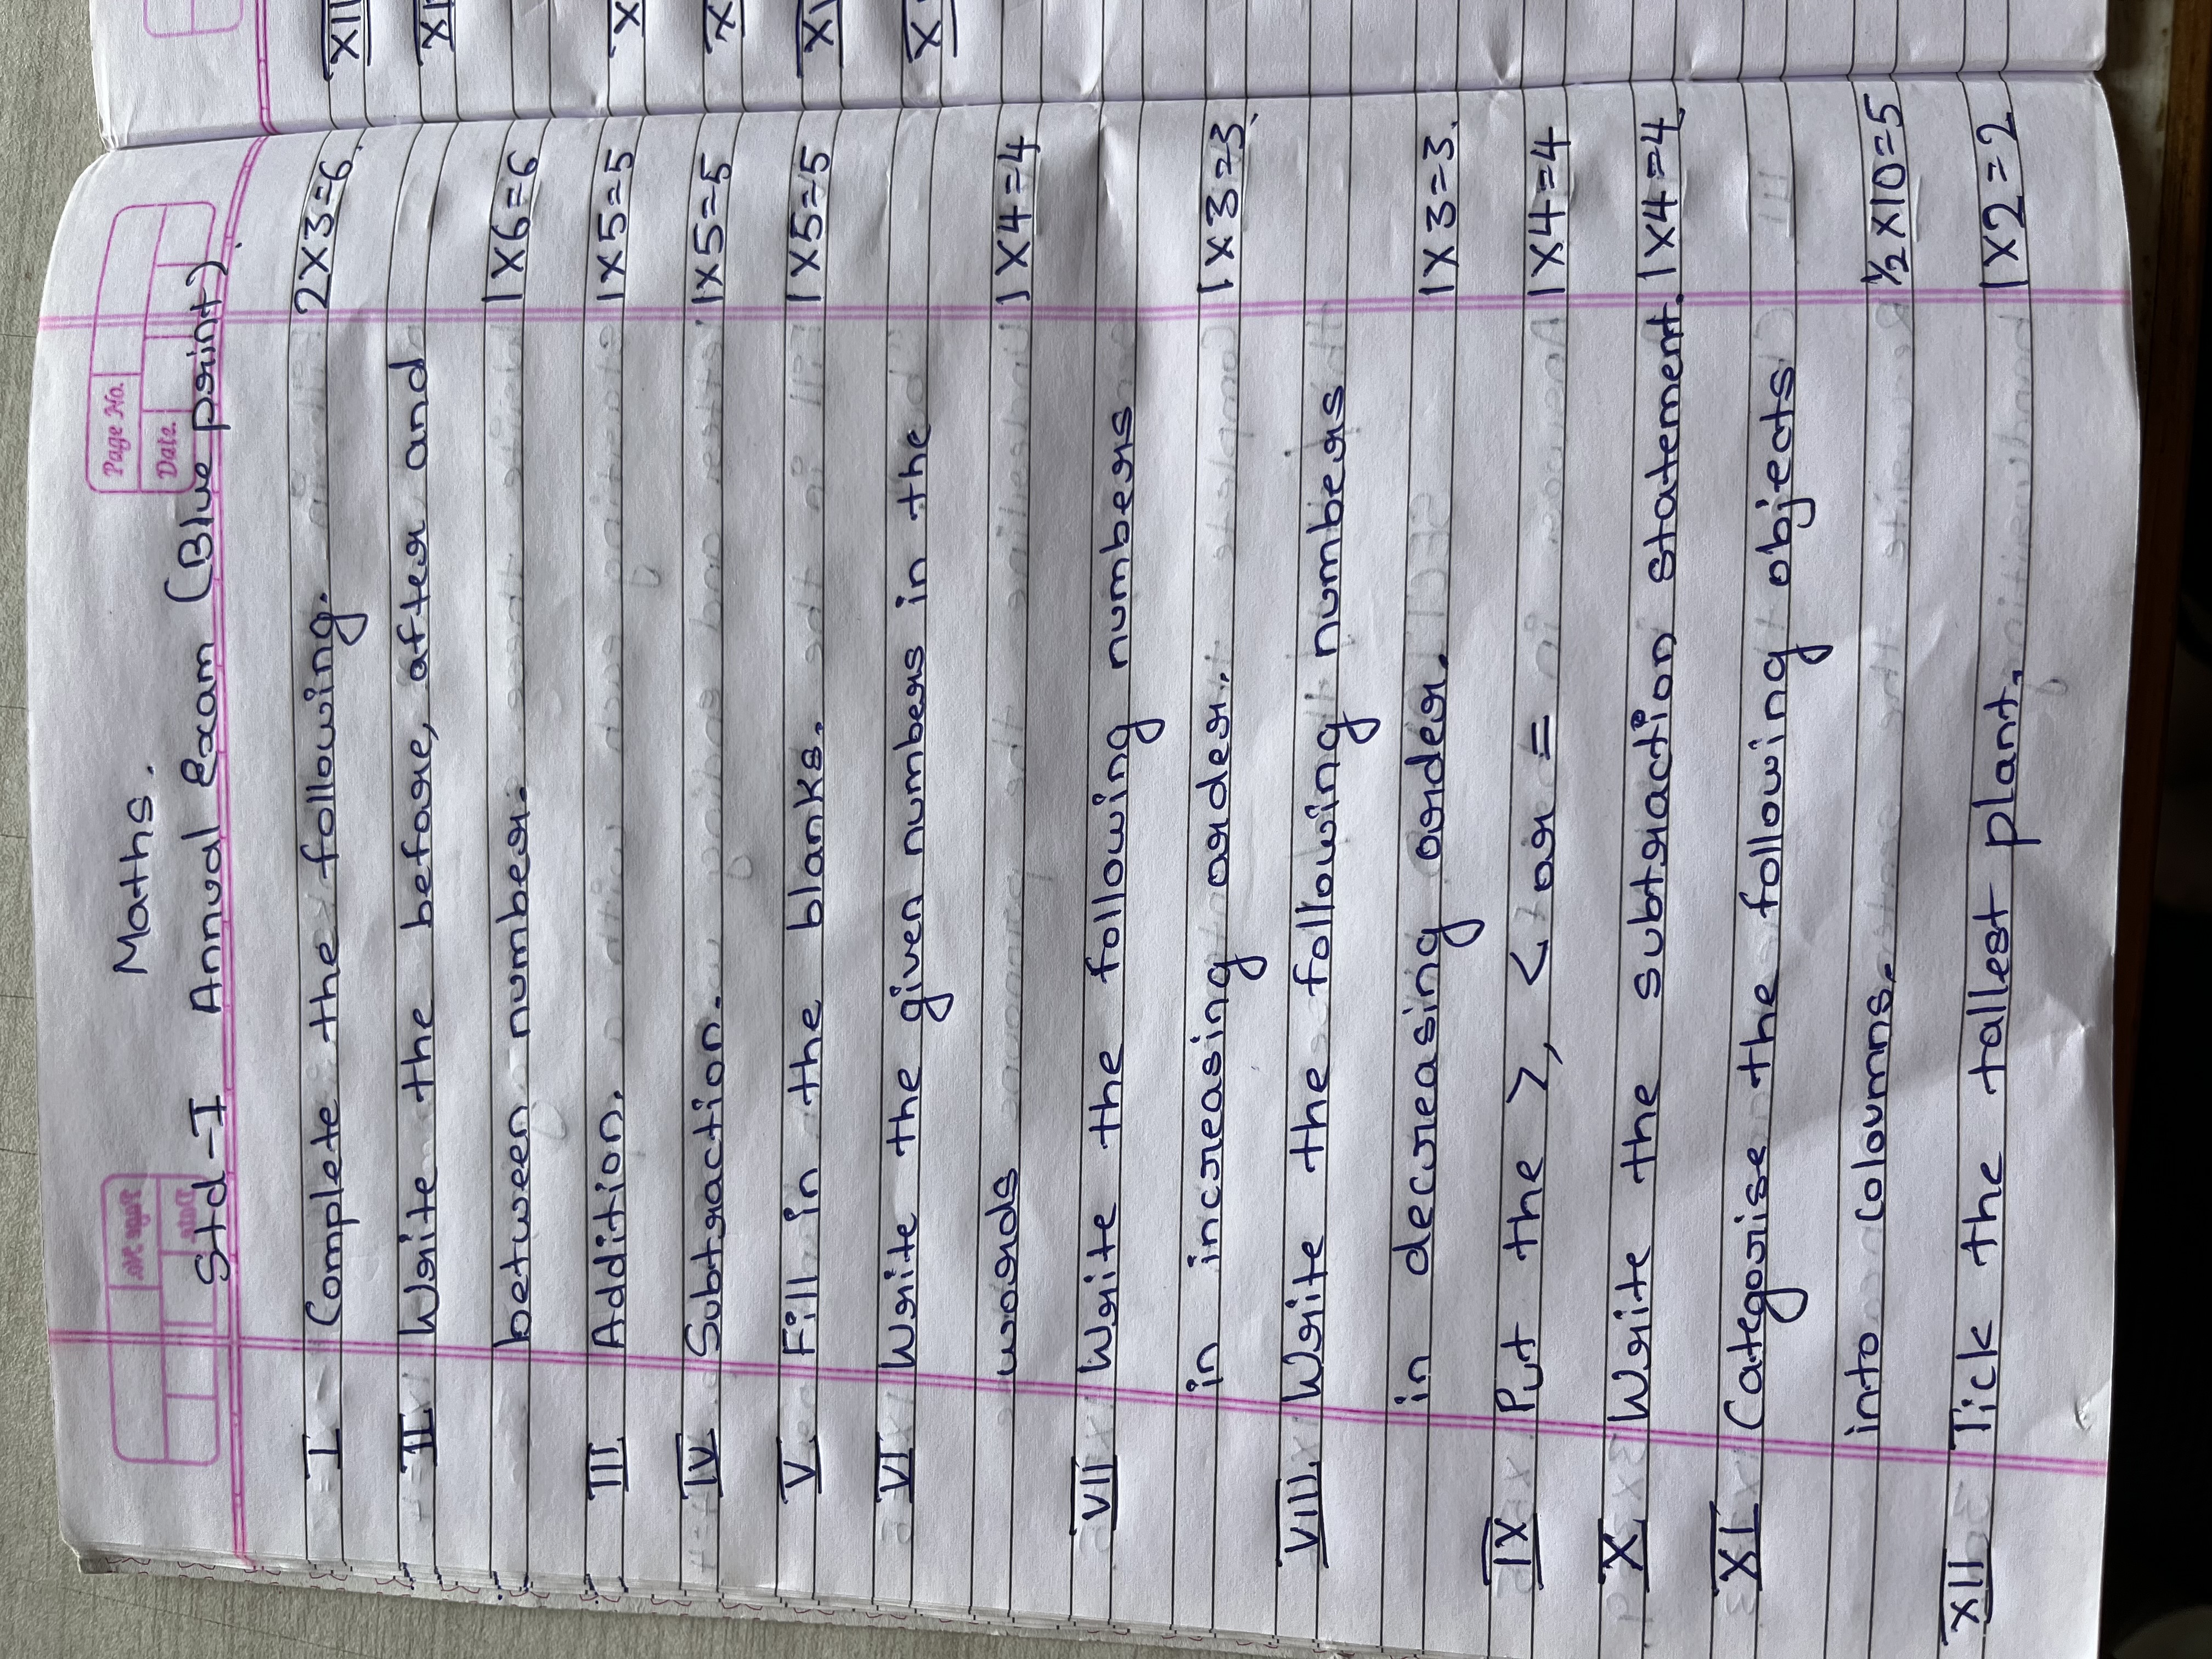 Page No.
Date
Maths.
Std-I Annual Exam (Blue print)
I Complete the following. 2X3=6.
II Write the before, after and
between number. 1X6=6
III Addition. 1X5=5
IV Subtraction. 1X5=5
V Fill in the blanks. 1X5=5
VI Write the given numbers in the
words 1X4=4
VII Write the following numbers
in increasing order. 1X3=3.
VIII Write the following numbers
in decreasing order. 1X3=3.
IX Put the >, < or = 1X4=4
X Write the subtraction statement. 1X4=4
XI Categorise the following objects
into coloumns. 1/2X10=5
XII Tick the tallest plant. 1X2=2